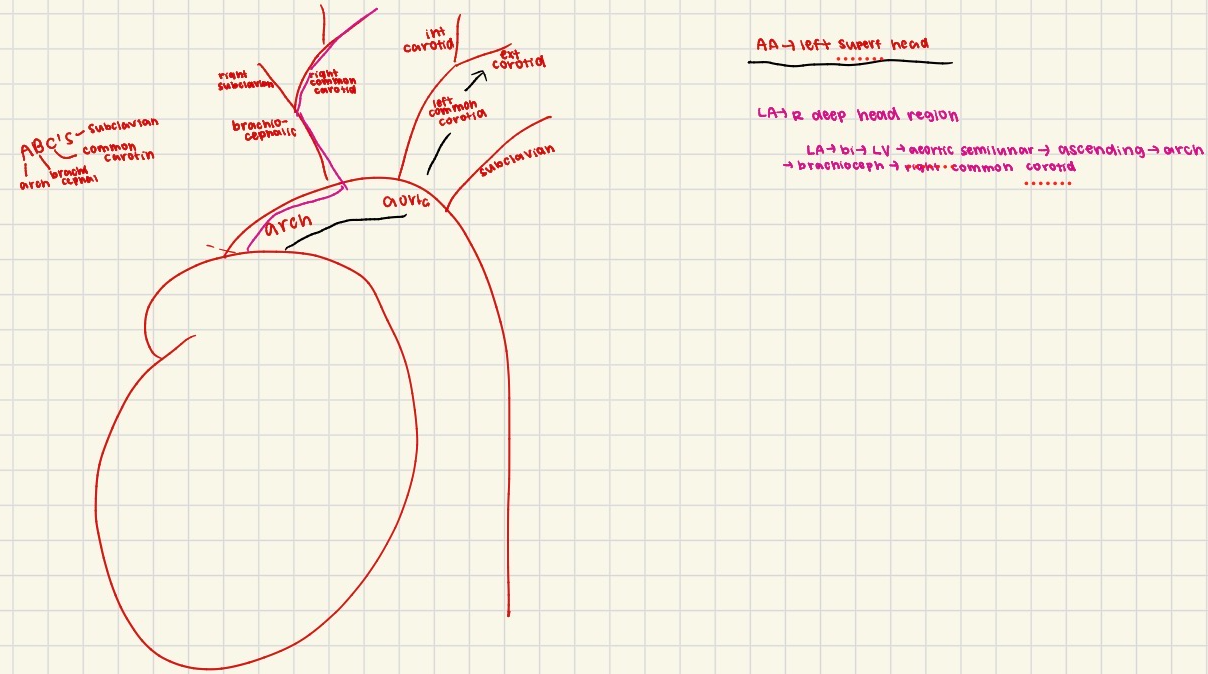 int
carotid
ext
corotid
right
subclavian
right
common
carotid
left
common
corotid
brachio-
cephalic
subclavian
ABC's
subclavian
common
carotin
arch
brachi
cephal
aortc
arch
AA → left superf head
LA → R deep head region
LA → bi → LV → aeortic semilunar → ascending → arch
→ brachioceph → right common corotid